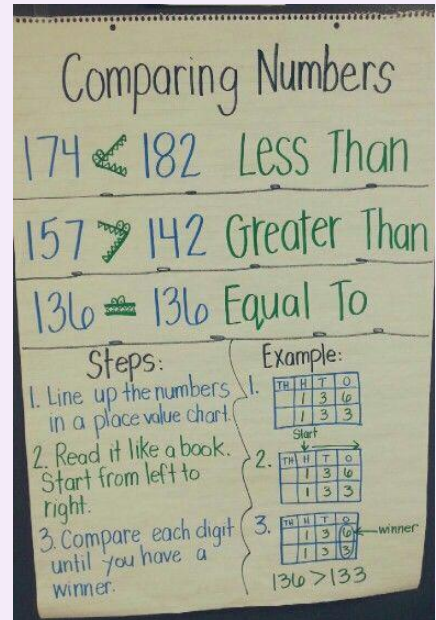 Comparing Numbers
174 < 182 Less Than
157 > 142 Greater Than
136 = 136 Equal To
Steps:
1. Line up the numbers
in a place value chart.
2. Read it like a book.
Start from left to
right.
3. Compare each digit
until you have a
winner.
Example:
1. TH H T O
1 3 6
1 3 3
Start
2. TH H T O
1 3 6
1 3 3
3. TH H T O
1 3 6 winner
1 3 3
136 > 133